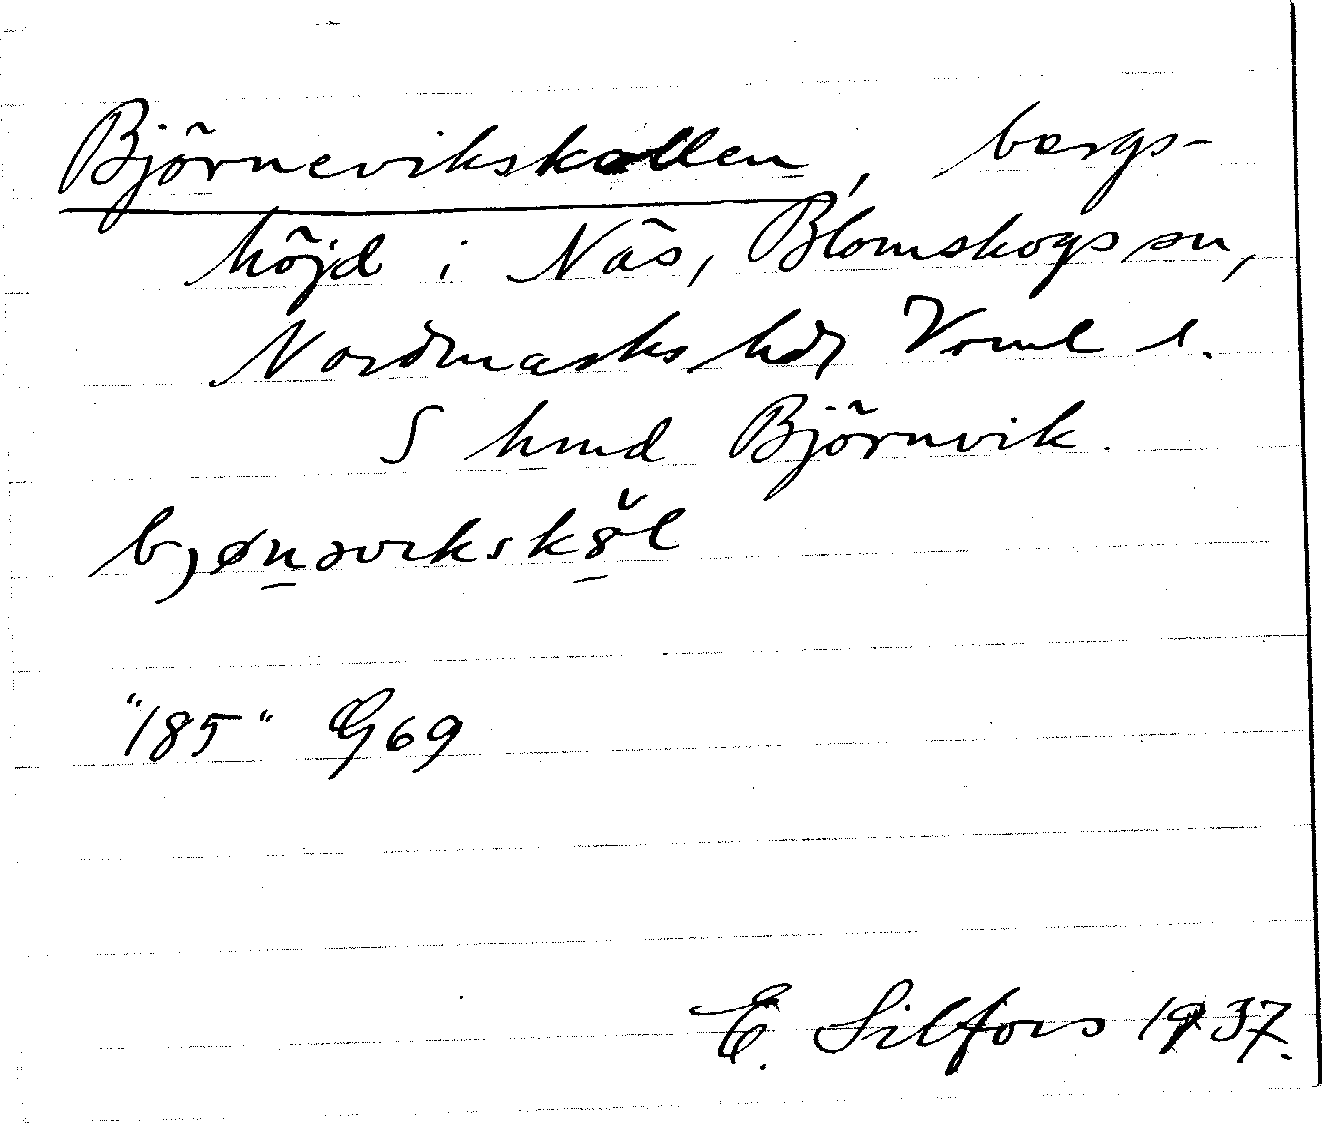 Björnevikskollen, bergs-
höjd i Näs, Blomskogs sn,
Nordmarks hd, Verml l.
S hmd Björnvik.
bjøn̲əvikskɞ̲̆l
"185" G69
E. Silfors 1937.